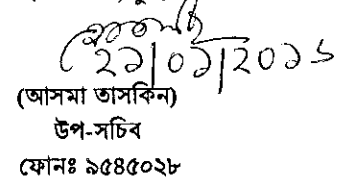 ২১|০১|২০১৬
(আসমা তাসকিন)
উপ-সচিব
ফোনঃ ৯৫৪৫০২৮